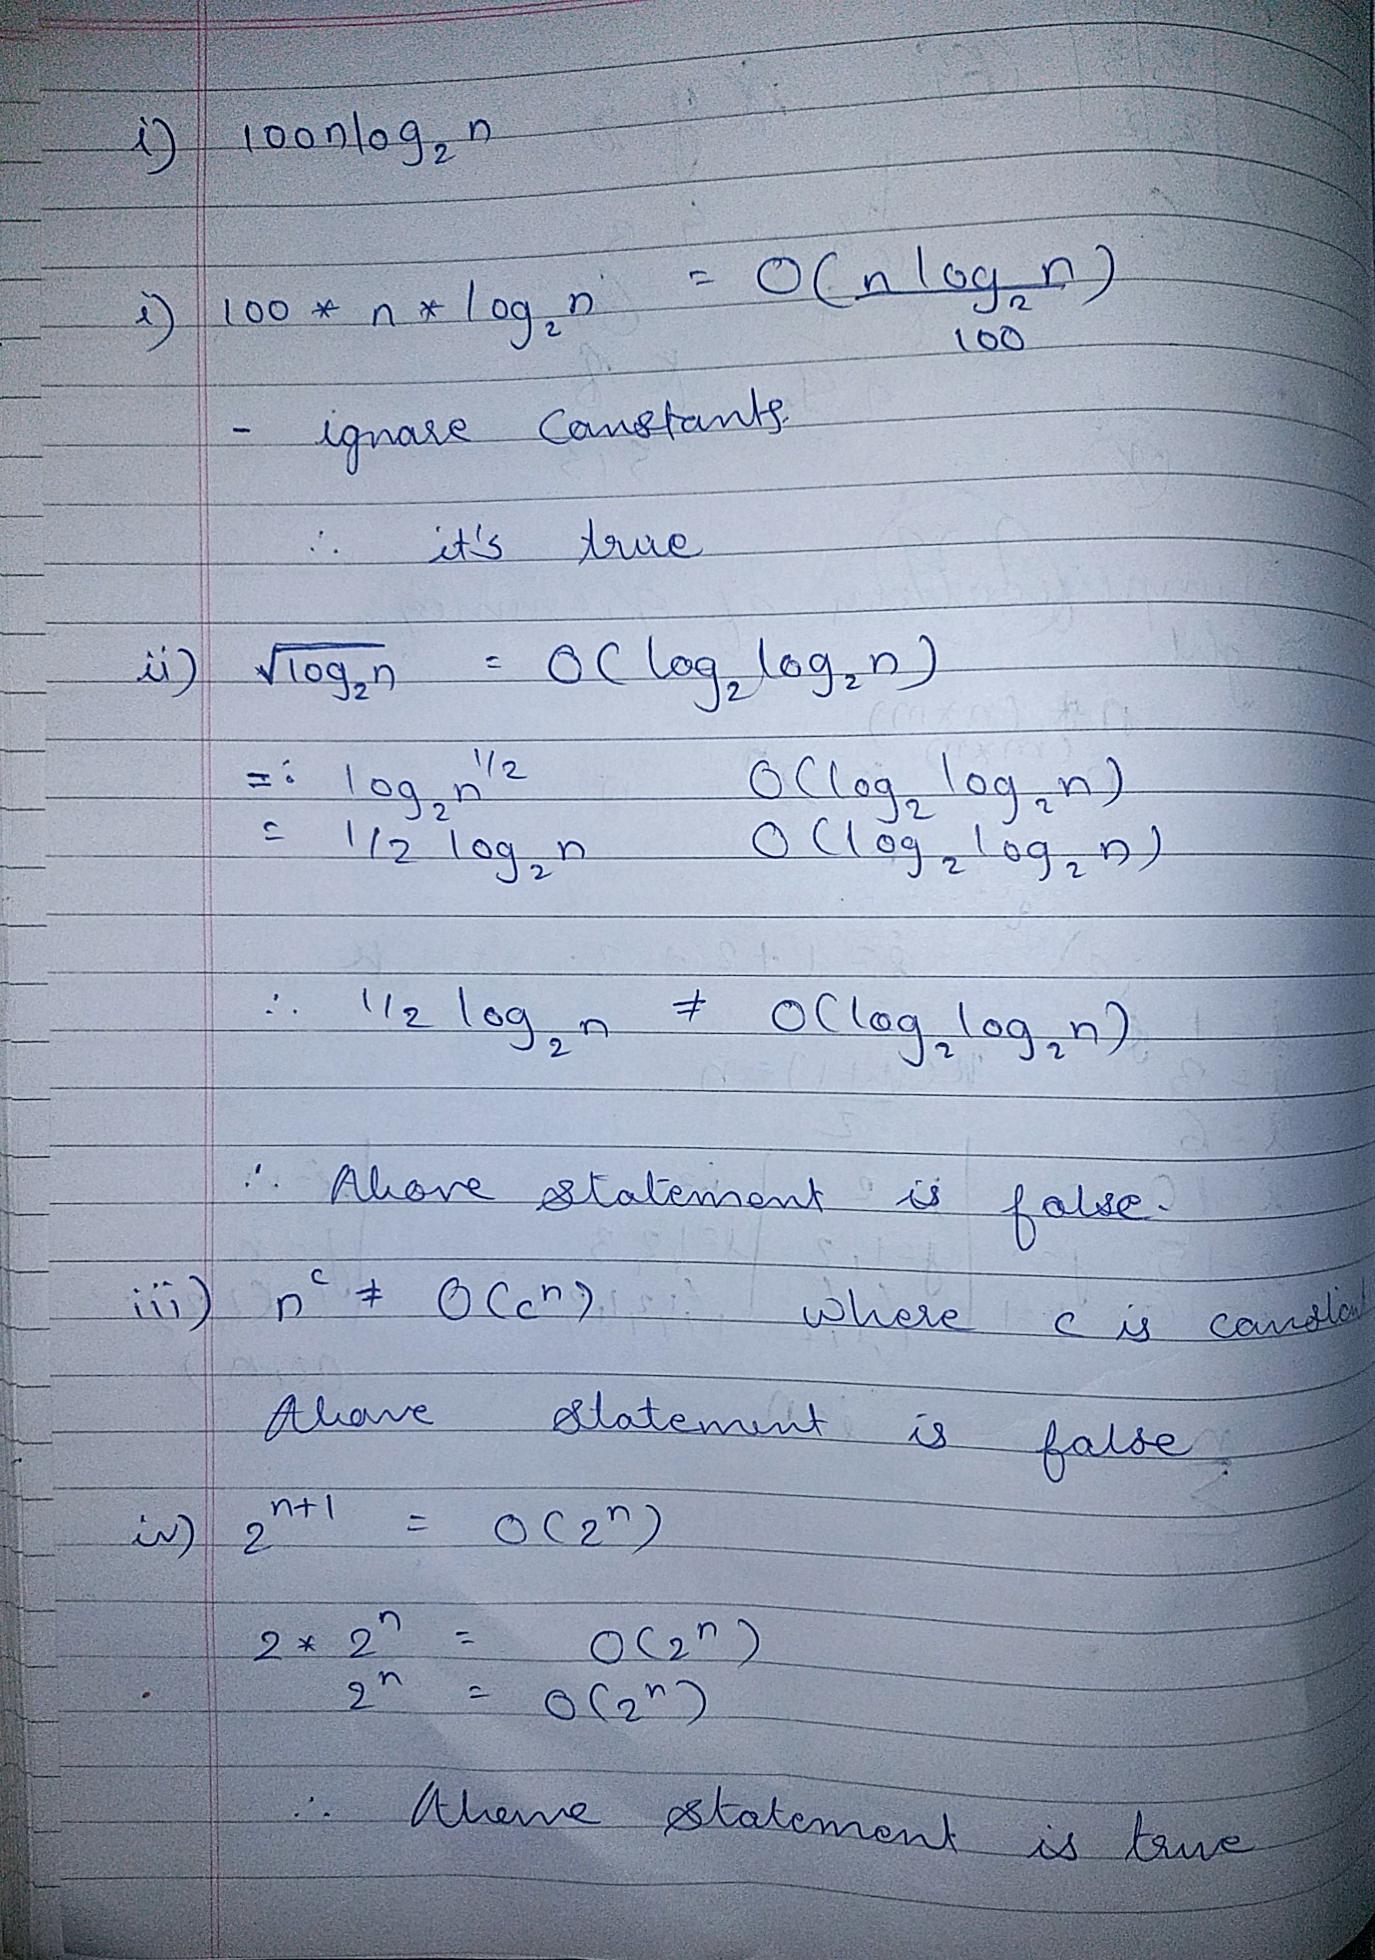 i) 100nlog₂n
i) 100 * n * log₂n = O(n log₂n)
100
- ignore constants.
∴ it's true
ii) √log₂n = O(log₂log₂n)
=: log₂n^1/2 O(log₂log₂n)
= 1/2 log₂n O(log₂log₂n)
∴ 1/2 log₂n ≠ O(log₂log₂n)
∴ Above statement is false.
iii) n^c ≠ O(c^n) where c is constant
Above statement is false.
iv) 2^n+1 = O(2^n)
2 * 2^n = O(2^n)
2^n = O(2^n)
∴ Above statement is true